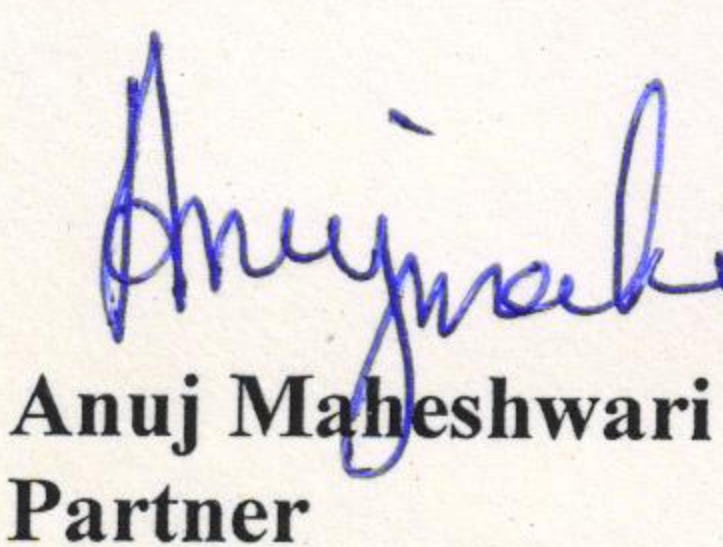 Anujmahe
Anuj Maheshwari
Partner